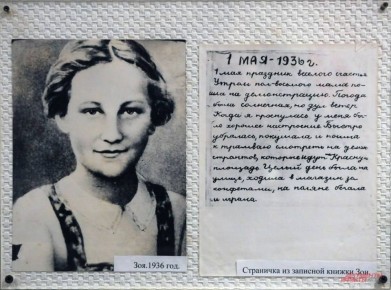 1 МАЯ-1936 г.
1 мая праздник веселого счастья
Утром пол-восьмого мама по-
шла на демонстрацию. Погода
была солнечная, но дул ветер
Когда я проснулась у меня бы-
ло хорошее настроение Быстро
убралась, покушала и пошла
к трамваю смотреть на демо
странтов, которые идут Красную
площадь Целый день была на
улице, ходила в магазин за
конфетами, на поляне бегала
и играла.
Зоя.1936 год.
Страничка из записной книжки Зои.